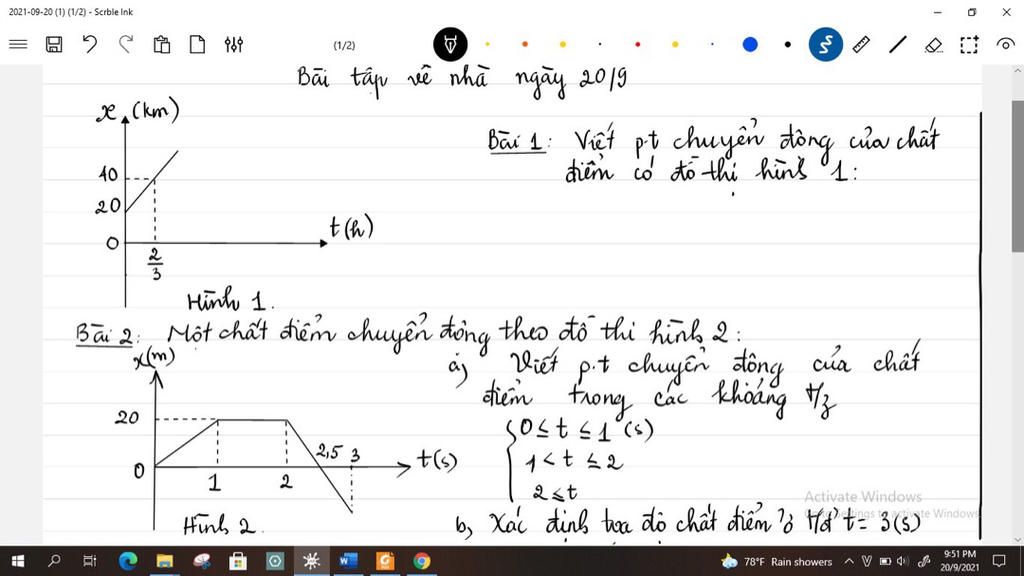 2021-09-20 (1) (1/2) - Scrble Ink
(1/2)
Bài tập về nhà ngày 20/9
x (km)
40
20
0
2/3
t (h)
Hình 1.
Bài 1: Viết pt chuyển động của chất
điểm có đồ thị hình 1:
Bài 2: Một chất điểm chuyển động theo đồ thị hình 2:
x(m)
20
0
1
2
2,5
3
t(s)
Hình 2.
a) Viết p.t chuyển động của chất
điểm trong các khoảng t/g
0 ≤ t ≤ 1 (s)
1 < t ≤ 2
2 ≤ t
b, Xác định tọa độ chất điểm ở t/đ t = 3 (s)
Activate Windows
78°F Rain showers
9:51 PM
20/9/2021